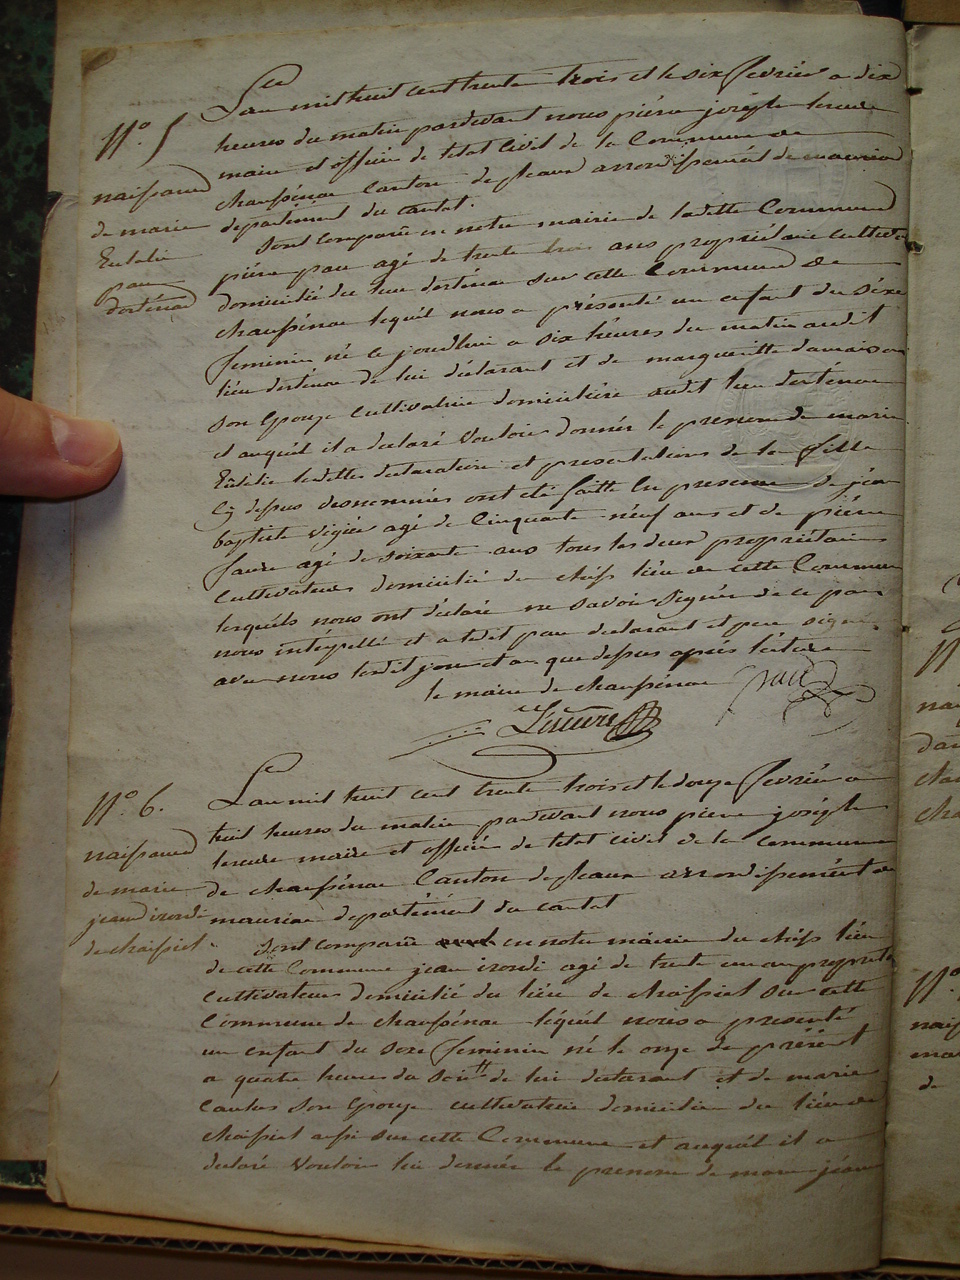 N°. 5
naissance
de marie
Eutalie
pau
dostenac
L'an mil huit cent trente trois et le six fevrier a dix
heures du matin pardevant nous piérre joséph lescure
maire et officier de l'etat Civil de la Commune de
chaussénac Canton de pleaux arrondissement de mauriac
departement du cantal.
Sont Comparû en notre mairie de ladette Commune
piérre pau agé de trente trois ans propriétaire cultiva
domicilié du lieu dosténac sur cette Commune de
chaussénac lequél nous a présenté un enfant du séxe
feminin né ce jourdhui a six heures du matin audit
lieu dosténac de lui déclarant et de margueritte damaison
son Epouze Cultivatrice domiciliére audit lieu dostenac
et auquél il a declaré Vouloir donnér le prenom de marie
Eutalie lesdittes declaration et presentations de la fille
Cy dessus desnommés ont été faitte En presence de jean
baptiste Vigiér agé de Cinquante neuf ans et de piérre
faure agé de soixante ans tous les deux propriétaires
Cultivateurs domicilié du chéf lieu de cette Commune
lesquéls nous ont déclaré ne savoir Signér de ce par
nous intérpellé et a ledit pau declarant et pere signé
avec nous lesdit jour et an que dessus aprés léctture
le maire de chaussénac pau
Lescure
N°. 6.
naissance
de marie
jeanne irondi
de chaissiol
L'an mil huit cent trente trois et le douze fevriér a
huit heures du matin pardevant nous pierre joséph
lescure maire et officiér de l'etat civil de la Commune
de chaussénac Canton de pleaux arrondissement de
mauriac departément du cantal
Sont Comparû en notre mairie du chéf lieu
de cette Commune jean irondi agé de trente un an propriéta
cultivateur domicilié du lieu de chaissiol sur cette
Commune de chaussénac léquél nous a presenté
un enfant du sexe feminin né le onze du présént
a quatre heures du soir de lui declarant et de marie
Cantas son Epouze cultivatrice domiciliée du lieu de
chaissiol aussi sur cette Commune et auquél il a
declaré Vouloir lui donnér le prenom de marie jéanne